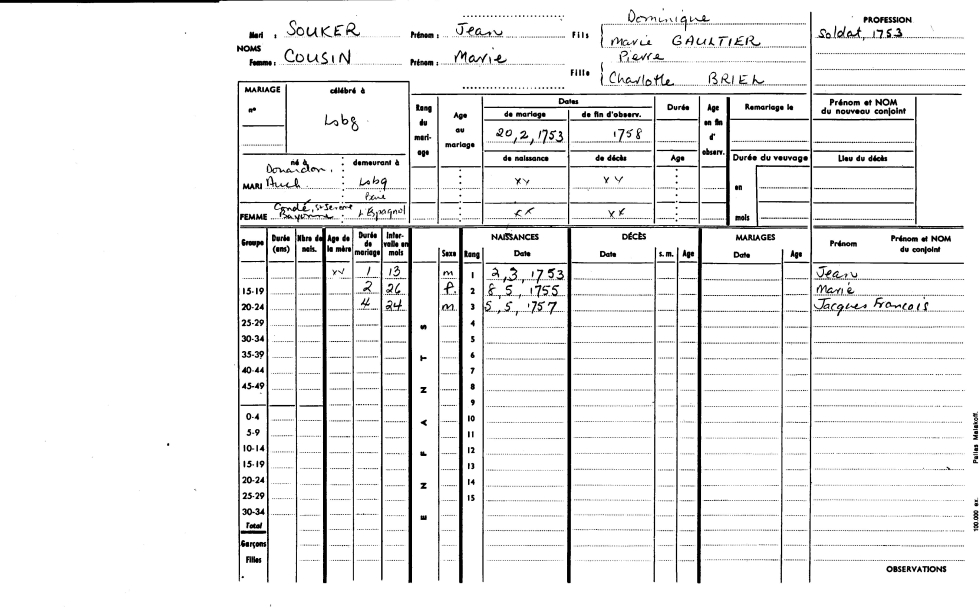 Dominique
PROFESSION
Mari : SOUKER Prénom : Jean Fils Marie GAULTIER Soldat, 1753
NOMS Pierre
Femme : COUSIN Prénom : Marie Fille Charlotte BRIEL
MARIAGE célébré à Rang du mari-age Age au mariage Dates Durée Age en fin d' observ. Remariage le Prénom et NOM du nouveau conjoint
n° de mariage de fin d'observ.
Lsbg. 20, 2, 1753 1758
de naissance de décès Age Durée du veuvage Lieu du décès
né à demeurant à
MARI Auch. Lsbg xy xy en
FEMME Condé, St Severe Bayonne L'Espagnol xx xx mois
Groupe Durée (ans) Nbre de nais. Age de la mère Durée de mariage Inter-valle en mois NAISSANCES DÉCÈS MARIAGES Prénom Prénom et NOM du conjoint
Sexe Rang Date Date s. m. Age Date Age
xy 1 13 m 1 2, 3, 1753 Jean
15-19 2 26 f. 2 8, 5, 1755 Marie
20-24 4 24 m 3 5, 5, 1757 Jacques Francois
25-29 4
30-34 5
35-39 6
40-44 7
45-49 8
9
0-4 10
5-9 11
10-14 12
15-19 13
20-24 14
25-29 15
30-34
Total
Garçons
Filles
ENFANTS
OBSERVATIONS
100.000 ex. Pelles Malakoff.